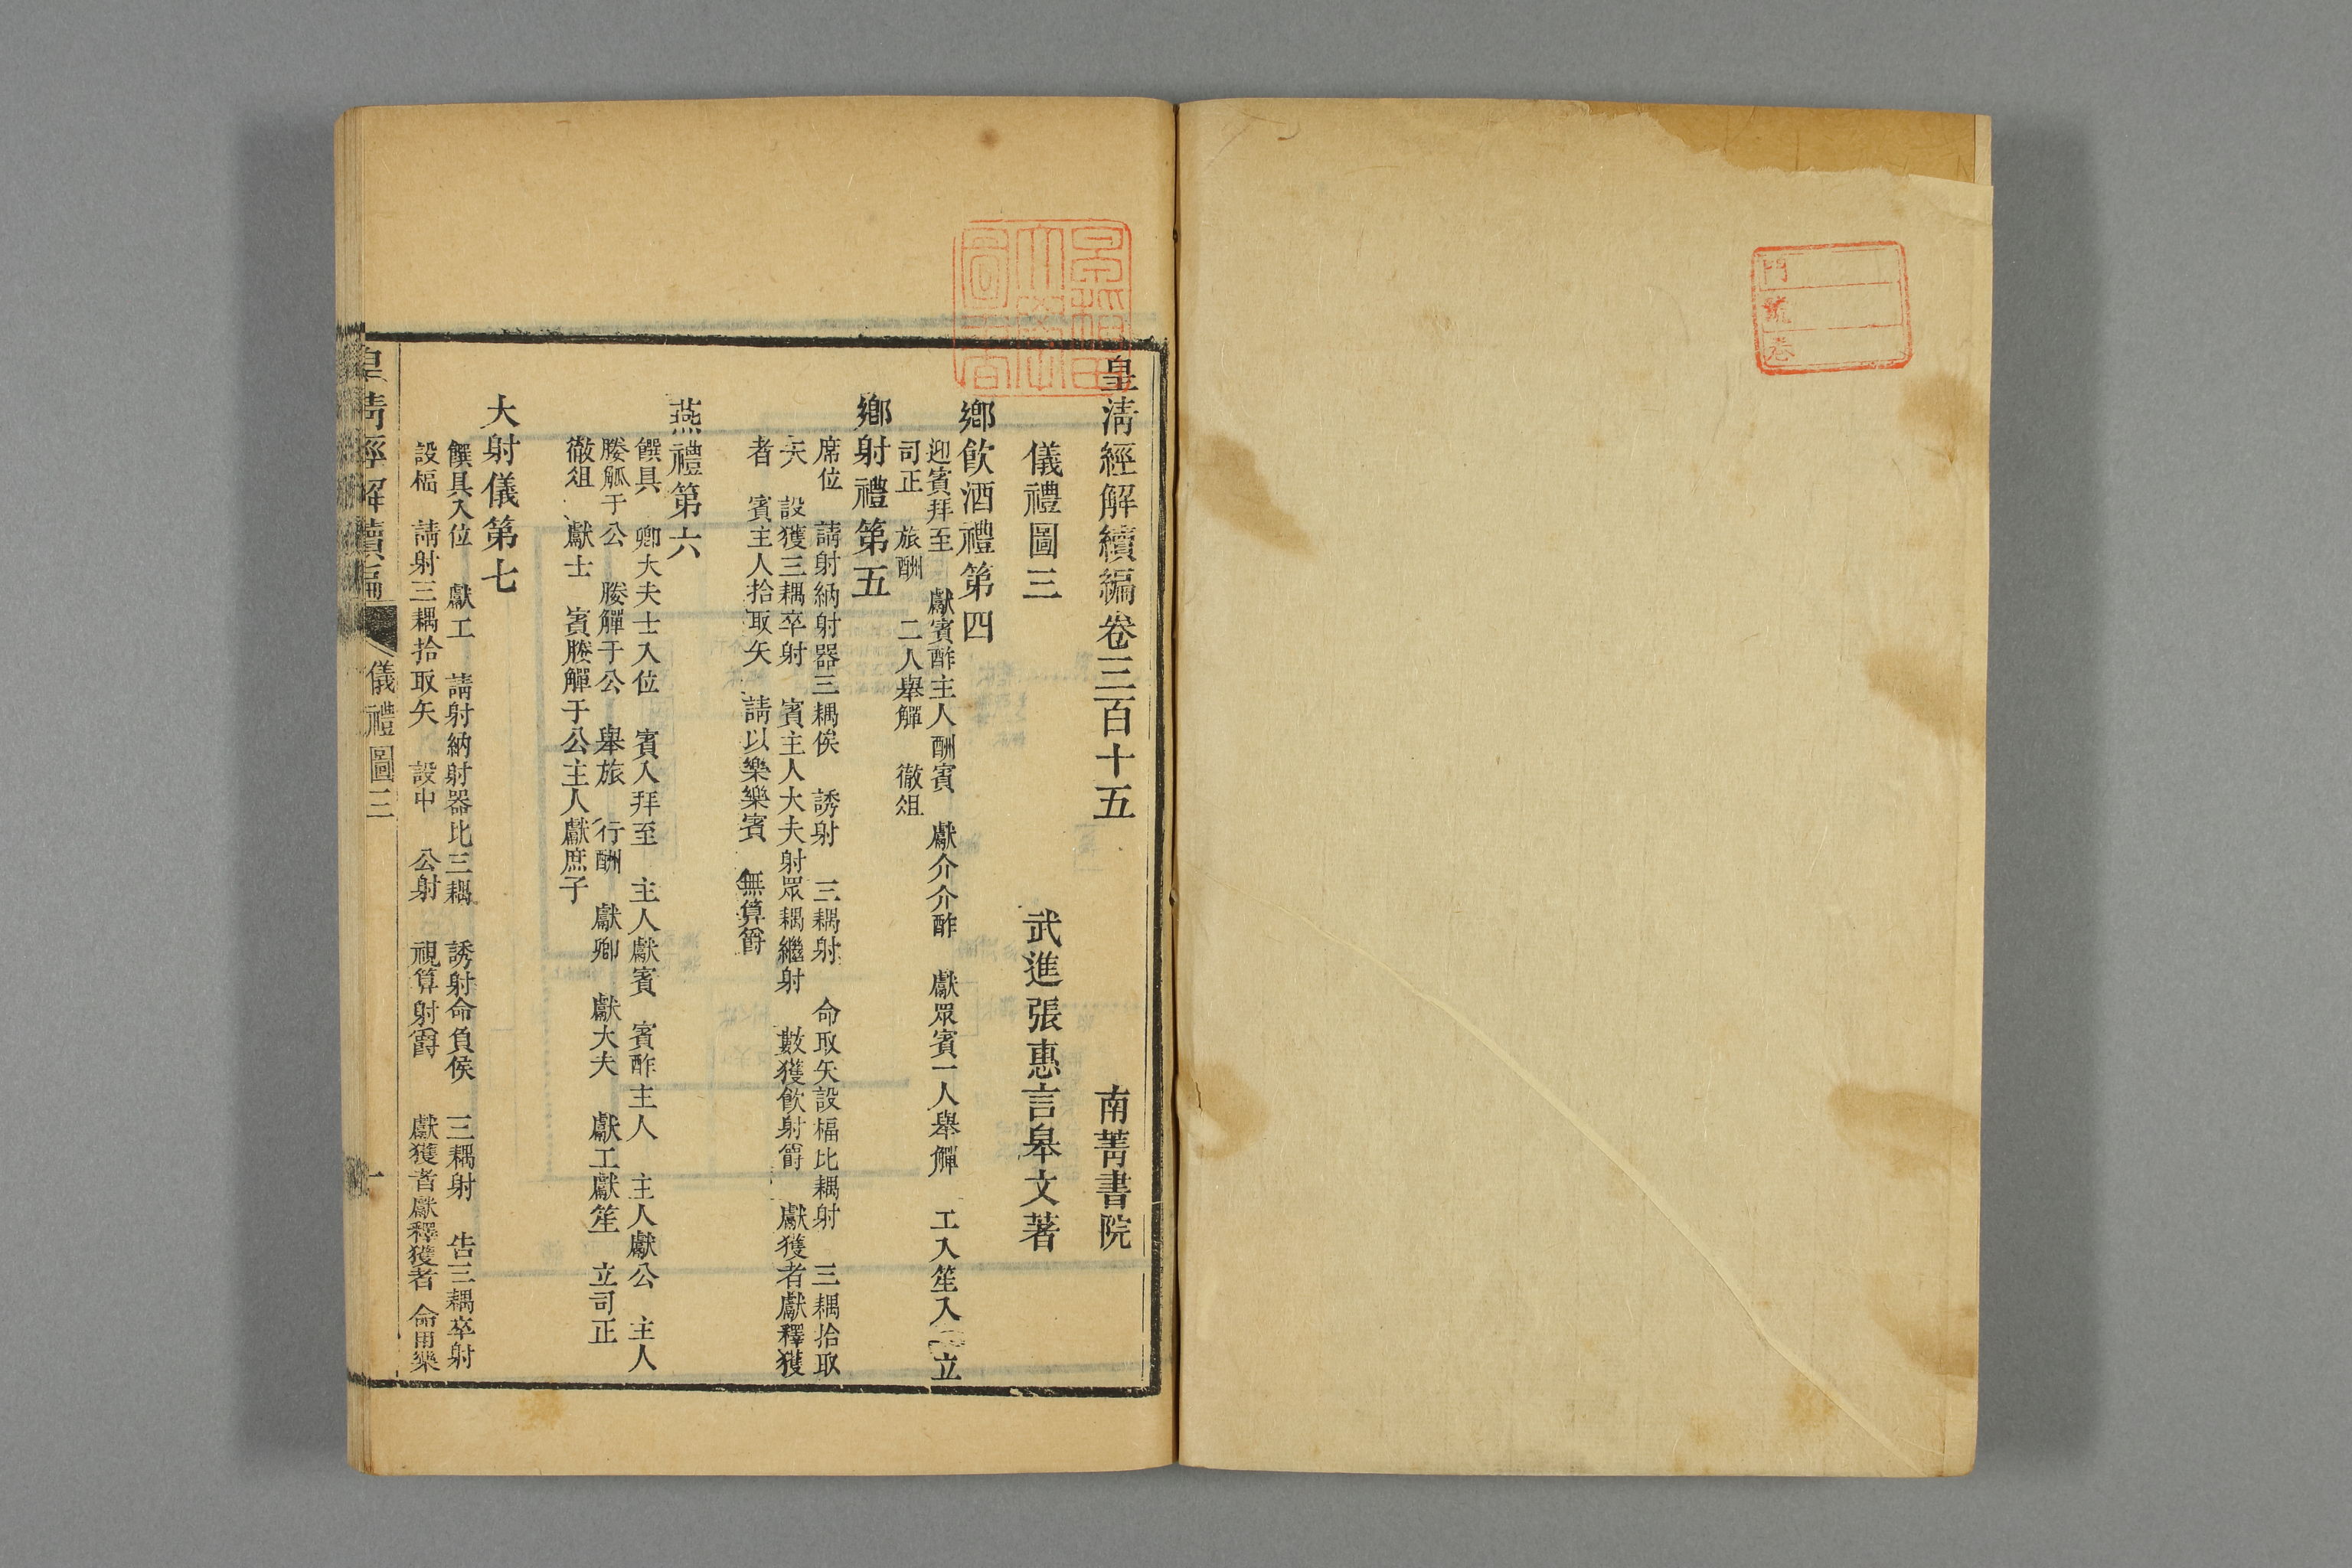 門
號
卷
皇清經解續編卷三百十五　南菁書院
儀禮圖三　武進張惠言皋文著
鄉飲酒禮第四
迎賓拜至　獻賓酢主人酬賓　獻介介酢　獻眾賓一人舉觶　工入笙入　立
司正　旅酬　二人舉觶　徹俎
鄉射禮第五
席位　請射納射器三耦俟　誘射　三耦射　命取矢設楅比耦射　三耦拾取
矢　設獲三耦卒射　賓主人大夫射眾耦繼射　數獲飲射爵　獻獲者獻釋獲
者　賓主人拾取矢　請以樂樂賓　無算爵
燕禮第六
饌具　卿大夫士入位　賓入拜至　主人獻賓　賓酢主人　主人獻公　主人
媵觚于公　媵觶于公　舉旅　行酬　獻卿　獻大夫　獻工獻笙　立司正
徹俎　獻士　賓媵觶于公主人獻庶子
大射儀第七
饌具入位　獻工　請射納射器比三耦　誘射命負侯　三耦射　告三耦卒射
設楅　請射三耦拾取矢　設中　公射　視算射爵　獻獲者獻釋獲者　命用樂
皇清經解續編　儀禮圖三　一